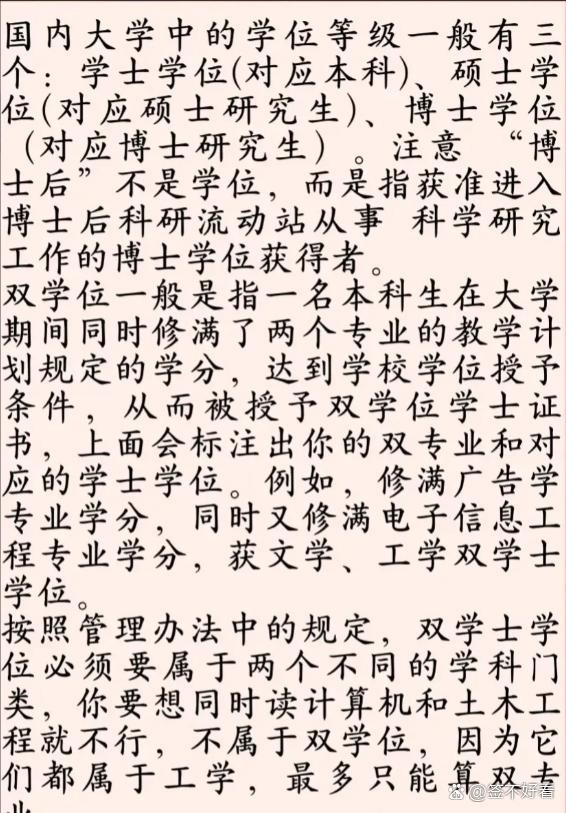 国内大学中的学位等级一般有三
个：学士学位(对应本科)、硕士学
位(对应硕士研究生)、博士学位
（对应博士研究生）。注意 “博
士后”不是学位，而是指获准进入
博士后科研流动站从事 科学研究
工作的博士学位获得者。
双学位一般是指一名本科生在大学
期间同时修满了两个专业的教学计
划规定的学分，达到学校学位授予
条件，从而被授予双学位学士证
书，上面会标注出你的双专业和对
应的学士学位。例如，修满广告学
专业学分，同时又修满电子信息工
程专业学分，获文学、工学双学士
学位。
按照管理办法中的规定，双学士学
位必须要属于两个不同的学科门
类，你要想同时读计算机和土木工
程就不行，不属于双学位，因为它
们都属于工学，最多只能算双专
@签不好看